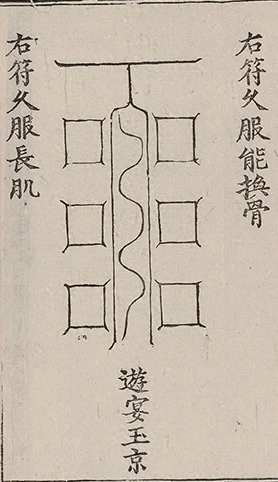 右符久服能換骨
遊宴玉京
右符久服長肌